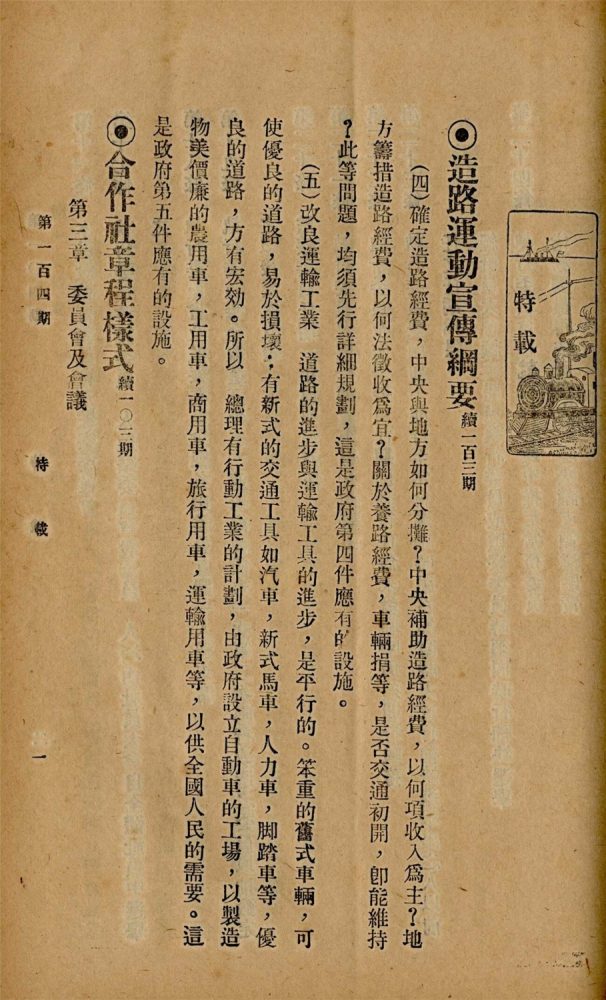 特載
◉造路運動宣傳綱要 續一百三期
（四）確定造路經費，中央與地方如何分攤？中央補助造路經費，以何項收入爲主？地
方籌措造路經費，以何法徵收爲宜？關於養路經費，車輛捐等，是否交通初開，卽能維持
？此等問題，均須先行詳細規劃，這是政府第四件應有的設施。
（五）改良運輸工業　道路的進步與運輸工具的進步，是平行的。笨重的舊式車輛，可
使優良的道路，易於損壞；有新式的交通工具如汽車，新式馬車，人力車，脚踏車等，優
良的道路，方有宏効。所以　總理有行動工業的計劃，由政府設立自動車的工場，以製造
物美價廉的農用車，工用車，商用車，旅行用車，運輸用車等，以供全國人民的需要。這
是政府第五件應有的設施。
◉合作社章程樣式 續一〇三期
第三章　委員會及會議
第一百四期　特載　一